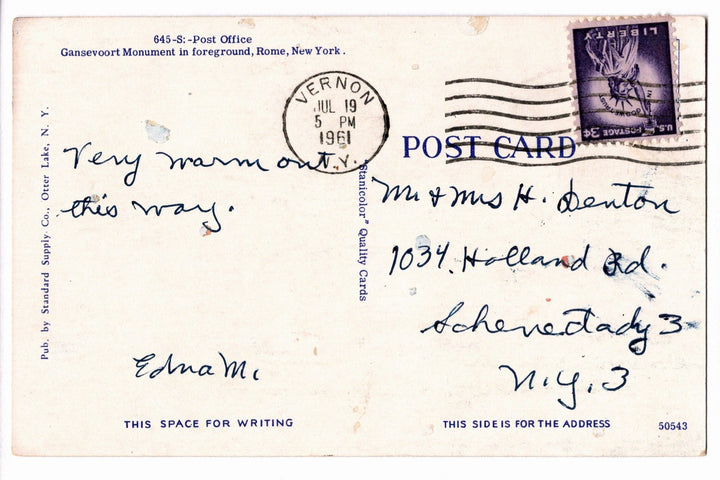 645-S:-Post Office
Gansevoort Monument in foreground, Rome, New York.
VERNON
JUL 19
5 PM
1961
N.Y.
LIBERTY
U.S. POSTAGE 3¢
POST CARD
Very warm out
this way.
Edna M.
Pub. by Standard Supply Co., Otter Lake, N. Y.
"Stanicolor" Quality Cards
Mr & Mrs H. Denton
1034 Holland Rd.
Schenectady 3
N.Y. 3
THIS SPACE FOR WRITING
THIS SIDE IS FOR THE ADDRESS
50543